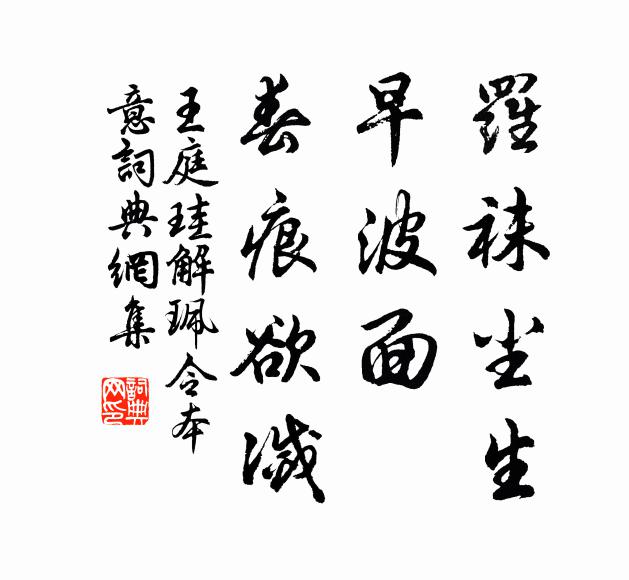 羅袜尘生
早波面
春痕欲滅
王庭珪解珮令本
意詞典網集
詞典
网印